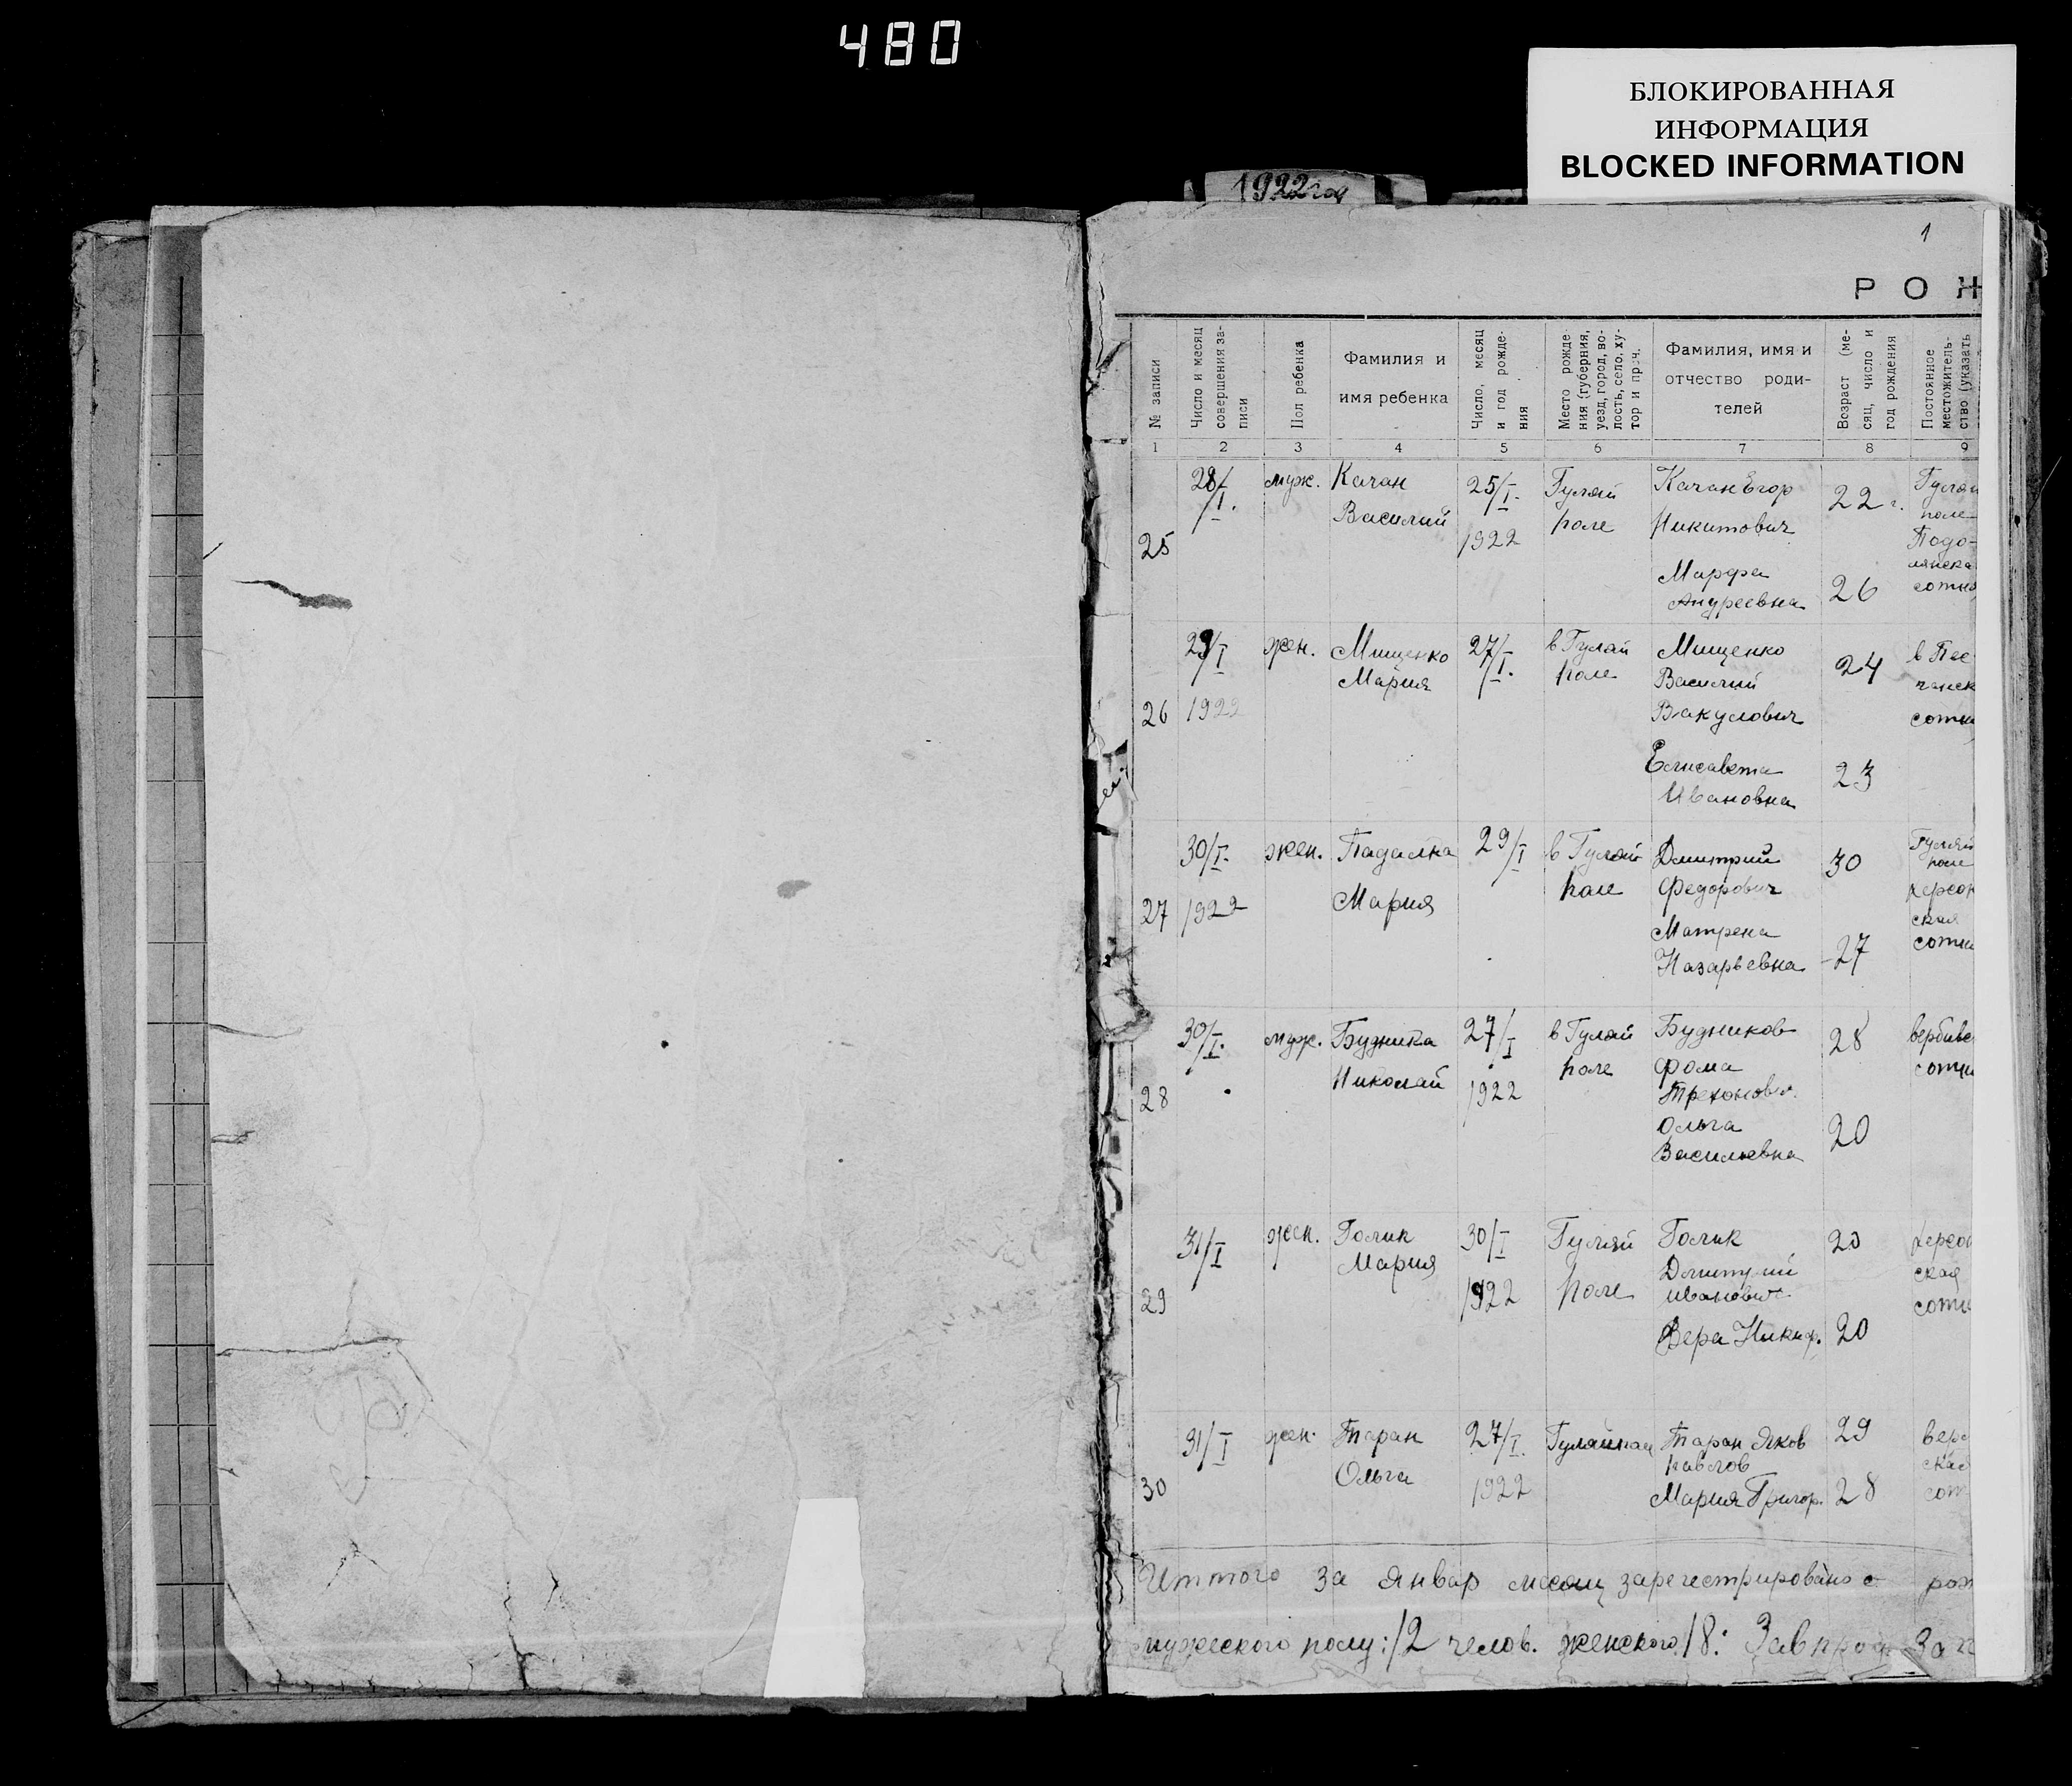 480
БЛОКИРОВАННАЯ
ИНФОРМАЦИЯ
BLOCKED INFORMATION
1922 год
1
РОЖ
№ записи
Число и месяц совершения за-
писи
Пол ребенка
Фамилия и
имя ребенка
Число, месяц
и год рожде-
ния
Место рожде
ния (губерния,
уезд, город, во-
лость, село, ху-
тор и проч.
Фамилия, имя и
отчество роди-
телей
Возраст (ме-
сяц, число и
год рождения
Постоянное
местожитель-
ство (указать
1 2 3 4 5 6 7 8 9
25
28/I.
муж.
Качан
Василий
25/I.
1922
Гуляй
поле
Качан Егор
Никитович
Марфа
Андреевна
22 г.
26
Гуляй
поле
Подо-
лянска
сотня
26
29/I
1922
жен.
Мищенко
Мария
27/I.
в Гуляй
поле
Мищенко
Василий
Вакулович
Елисавета
Ивановна
24
23
в Пес
чанск
сотн
27
30/I.
1922
жен.
Падалка
Мария
29/I
в Гуляй
поле
Дмитрий
Федорович
Матрена
Назарьевна
30
27
Гуляй
поле
херсон
ская
сотн
28
30/I.
муж.
Будника
Николай
27/I
1922
в Гуляй
поле
Будников
Фома
Ольга
Васильевна
28
20
вербивс
сотн
29
31/I
жен.
Голик
Мария
30/I
1922
Гуляй
Поле
Голик
Дмитрий
Иванович
Вера Никиф.
20
20
херсон
ская
сотн
30
31/I
жен.
Таран
Ольга
27/I.
1922
Гуляйполе
Таран Яков
Павлов
Мария Григор.
29
28
верб
ская
сот
Иттого за январ месяц зарегестрировано рож
мужеского полу: 12 челов. женского 18: Зав